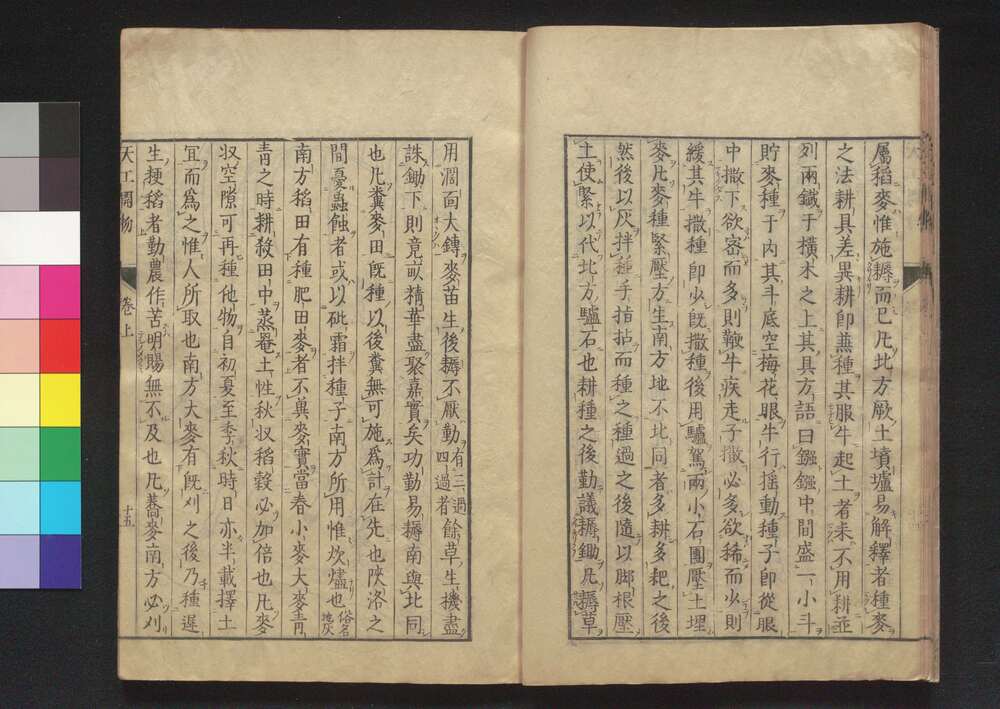 屬稻麥惟施耨而已凡北方厥土墳壚易解釋者種麥
之法耕具差異耕即兼種其服牛起土者耒不用耕並
列兩鐵于橫木之上其具方語曰鏹鏹中間盛一小斗
貯麥種于內其斗底空梅花眼牛行搖動種子即從眼
中撒下欲密而多則鞭牛疾走子撒必多欲稀而少則
緩其牛撒種即少既撒種後用驢駕兩小石團壓土埋
麥凡麥種緊壓方生南方地不北同者多耕多耙之後
然後以灰拌種手指拈而種之種過之後隨以脚根壓
土使緊以代北方驢石也耕種之後勤議耨鋤凡耨草
用濶面大鎛麥苗生後耨不厭勤有三過四過者餘草生機盡
誅鋤下則竟畝精華盡聚嘉實矣功勤易耨南與北同
也凡糞麥田既種以後糞無可施為計在先也陝洛之
間憂蟲蝕者或以砒霜拌種子南方所用惟炊燼也俗名地灰
南方稻田有種肥田麥者不兾麥實當春小麥大麥青
青之時耕殺田中蒸罨土性秋収稻穀必加倍也凡麥
収空隙可再種他物自初夏至季秋時日亦半載擇土
宜而為之惟人所取也南方大麥有既刈之後乃種遲
生粳稻者勤農作苦明賜無不及也凡蕎麥南方必刈
天工開物 卷上 十五